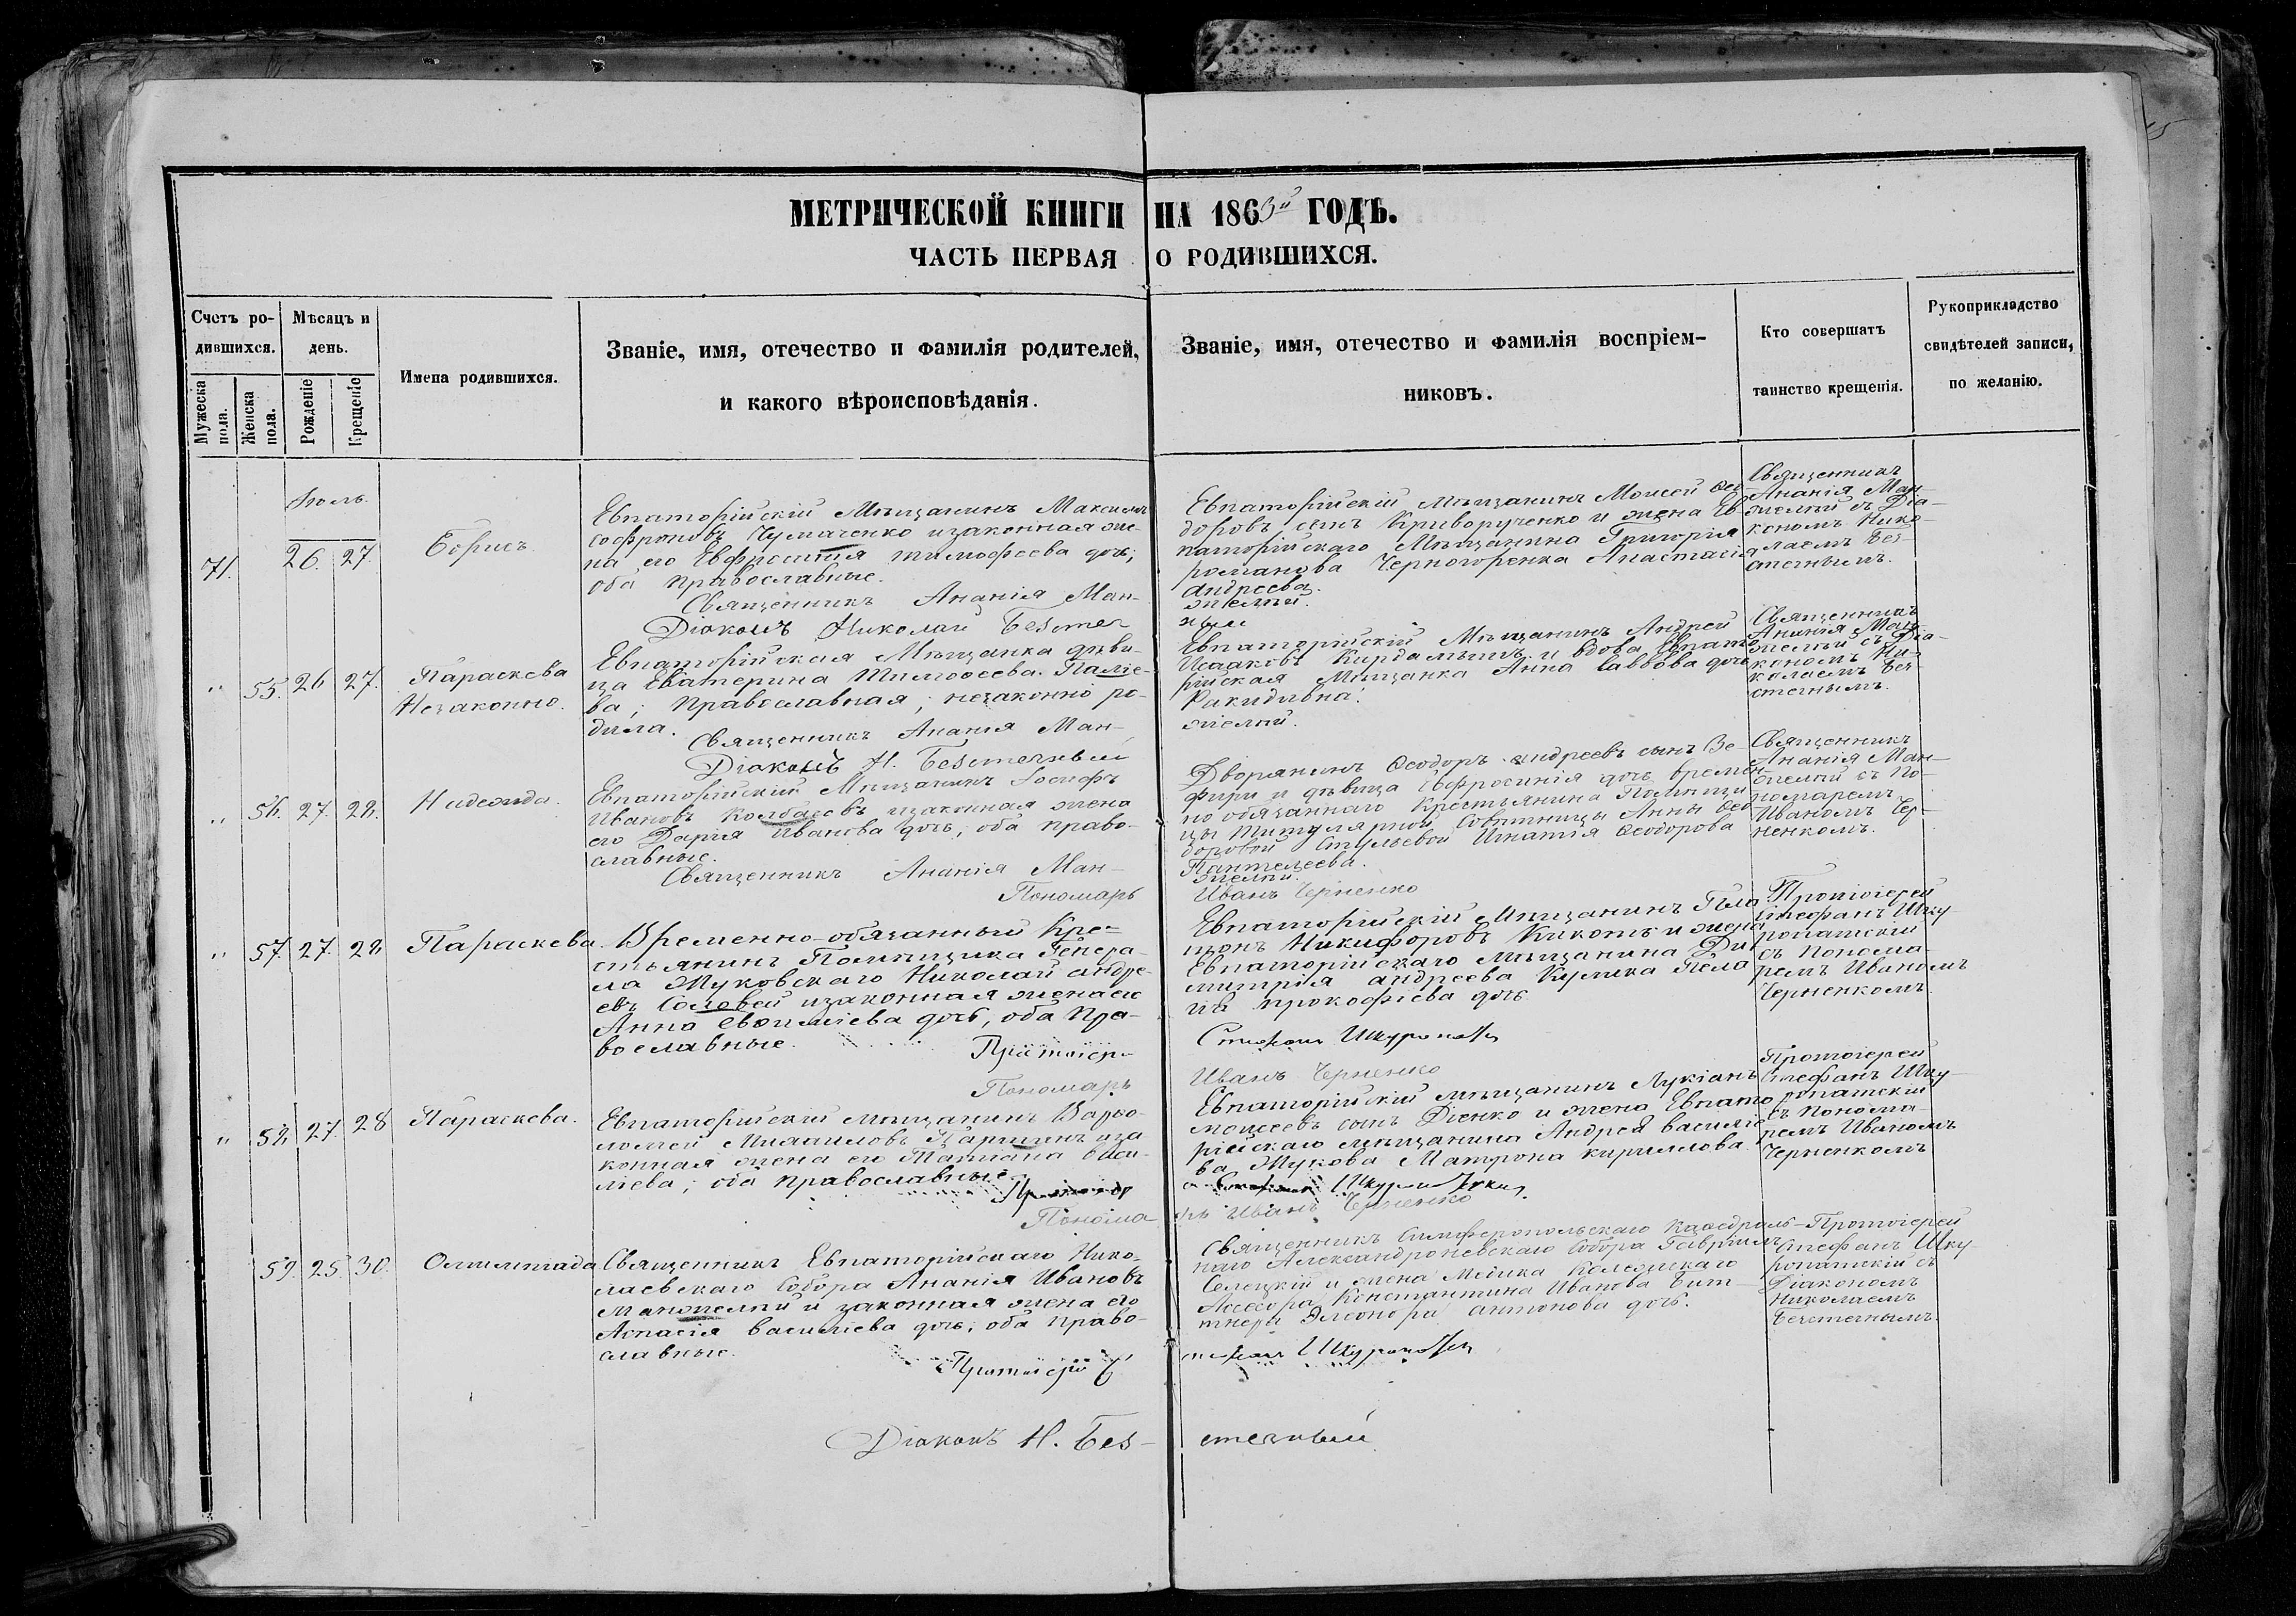 МЕТРИЧЕСКОЙ КНИГИ НА 1863й ГОДЪ.
ЧАСТЬ ПЕРВАЯ О РОДИВШИХСЯ.
Счетъ родившихся.
Мужеска пола.
Женска пола.
Мѣсяцъ и день.
Рожденіе
Крещеніе
Имена родившихся.
Званіе, имя, отечество и фамилія родителей,
и какого вѣроисповѣданія.
Званіе, имя, отечество и фамилія воспріем-
никовъ.
Кто совершатъ
таинство крещенія.
Рукоприкладство
свидѣтелей записи,
по желанію.
Іюль.
71. 26. 27.
Борисъ
Евпаторійскій Мѣщанинъ Максимъ
Софроновъ Кумаченко и законная же-
на его Евфросинія Тимофеева дочь,
оба православные.
Священникъ Ананія Ман-
Діаконъ Николай Безтеч
Евпаторійскій Мѣщанинъ Моисей Ѳео-
доровъ сынъ Криворученко и жена Ев-
паторійскаго Мѣщанина Григорія
Романова Черногоренка Анастасія
Андреева.
Священникъ
Ананія Ман-
желѣй съ Діа-
кономъ Нико-
лаемъ Без-
" 55. 26 27.
Параскева
Незаконно.
Евпаторійская Мѣщанка дѣви-
ца Екатерина Тимоѳеева Паліе-
ва; Православная; незаконно ро-
дила.
Священникъ Ананія Ман-
Діаконъ Н. Безтечный
Евпаторійскій Мѣщанинъ Андрей
Исааковъ и вдова Евпато-
рійская Мѣщанка Анна Саввова дочь
Священникъ
Ананія Ман-
съ Діа-
кономъ Ни-
колаемъ Без-
" 56. 27. 28.
Надежда.
Евпаторійскій Мѣщанинъ Іосифъ
Ивановъ Колбасовъ и законная жена
его Дарія Иванова дочь, оба право-
славные.
Священникъ Ананія Ман-
Пономарь
Дворянинъ Ѳеодоръ Андреевъ сынъ Зе-
фири и дѣвица Евфросинія дочь времен-
но обязаннаго Крестьянина Помѣщи-
цы Титулярной Совѣтницы Анны Ѳео-
доровой Игнатія Ѳеодорова
Пантелеева.
Иванъ Черненко
Священникъ
Ананія Ман-
съ По-
номаремъ
Иваномъ Чер-
ненкомъ.
" 57. 27. 28
Параскева
Временно-обязанный Кре-
стьянинъ Помѣщика Генера-
ла Жуковскаго Николай Андре-
евъ Соловей и законная жена его
Анна дочь, оба Пра-
вославные.
Протоіер-
Пономарь
Евпаторійскій Мѣщанинъ Пла-
тонъ Никифоровъ Кикоть и жена
Евпаторійскаго Мѣщанина Ди-
митрія Андреева Кулика Пела-
гія Прокофіева дочь.
Стефанъ
Иванъ Черненко
Протоіерей
Стефанъ Шку-
ропатскій
съ Понома-
ремъ Иваномъ
Черненкомъ.
" 58. 27. 28
Параскева.
Евпаторійскій Мѣщанинъ Варѳо-
ломей Михаиловъ и за-
конная жена его Татіана Васи-
ліева; оба православные.
Понома-
Евпаторійскій мѣщанинъ Лукіанъ
Моисеевъ сынъ Діенко и жена Евпато-
рійскаго мѣщанина Андрея Василіе-
ва Жукова Матрона Кириллова.
рь Иванъ Черненко
Протоіерей
Стефанъ Шку-
ропатскій
съ Понома-
ремъ Иваномъ
Черненкомъ
59. 25. 30.
Олимпіада
Священникъ Евпаторійскаго Нико-
лаевскаго Собора Ананія Ивановъ
и законная жена его
Аспасія Василіева дочь; оба право-
славные.
Священникъ Симферопольскаго Каѳедраль-
наго Александроневскаго Собора Гавріилъ
Селецкій и жена Колежскаго
Ассесора Константина Иванова
Элеонора Антонова дочь.
Протоіерей
Стефанъ Шку-
ропатскій съ
Діакономъ
Николаемъ
Безтечнымъ.
Діаконъ Н. Без- течный